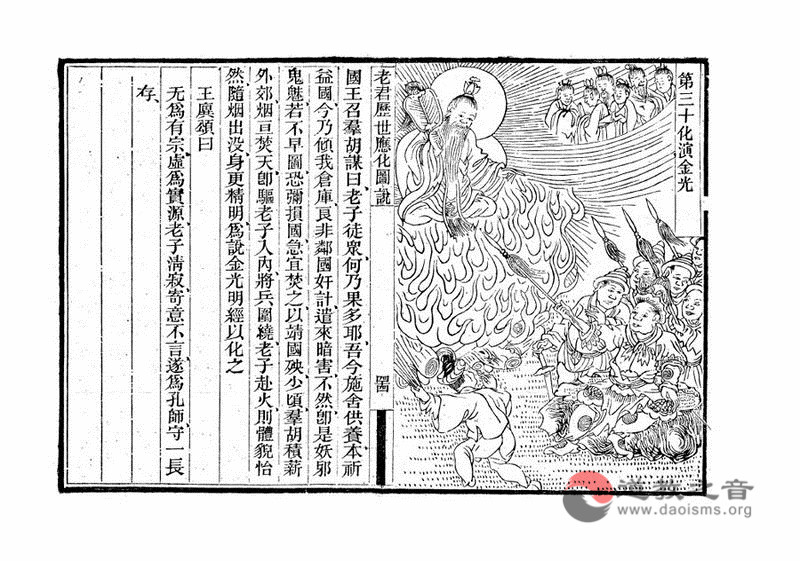 第三十化演金光
老君歷世應化圖說
國王召羣胡謀曰老子徒衆何乃果多耶吾今施舍供養本祈
益國今乃傾我倉庫良非鄰國奸計遣來暗害不然卽是妖邪
鬼魅若不早圖恐彌損國急宜焚之以靖國殃少頃羣胡積薪
外郊烟亘焚天卽驅老子入內將兵圍繞老子赴火則體貌怡
然隨烟出没身更精明爲說金光明經以化之
王廙頌曰
无爲有宗虛爲實源老子清寂寄意不言遂爲孔師守一長
存
道教之音
www.daoisms.org